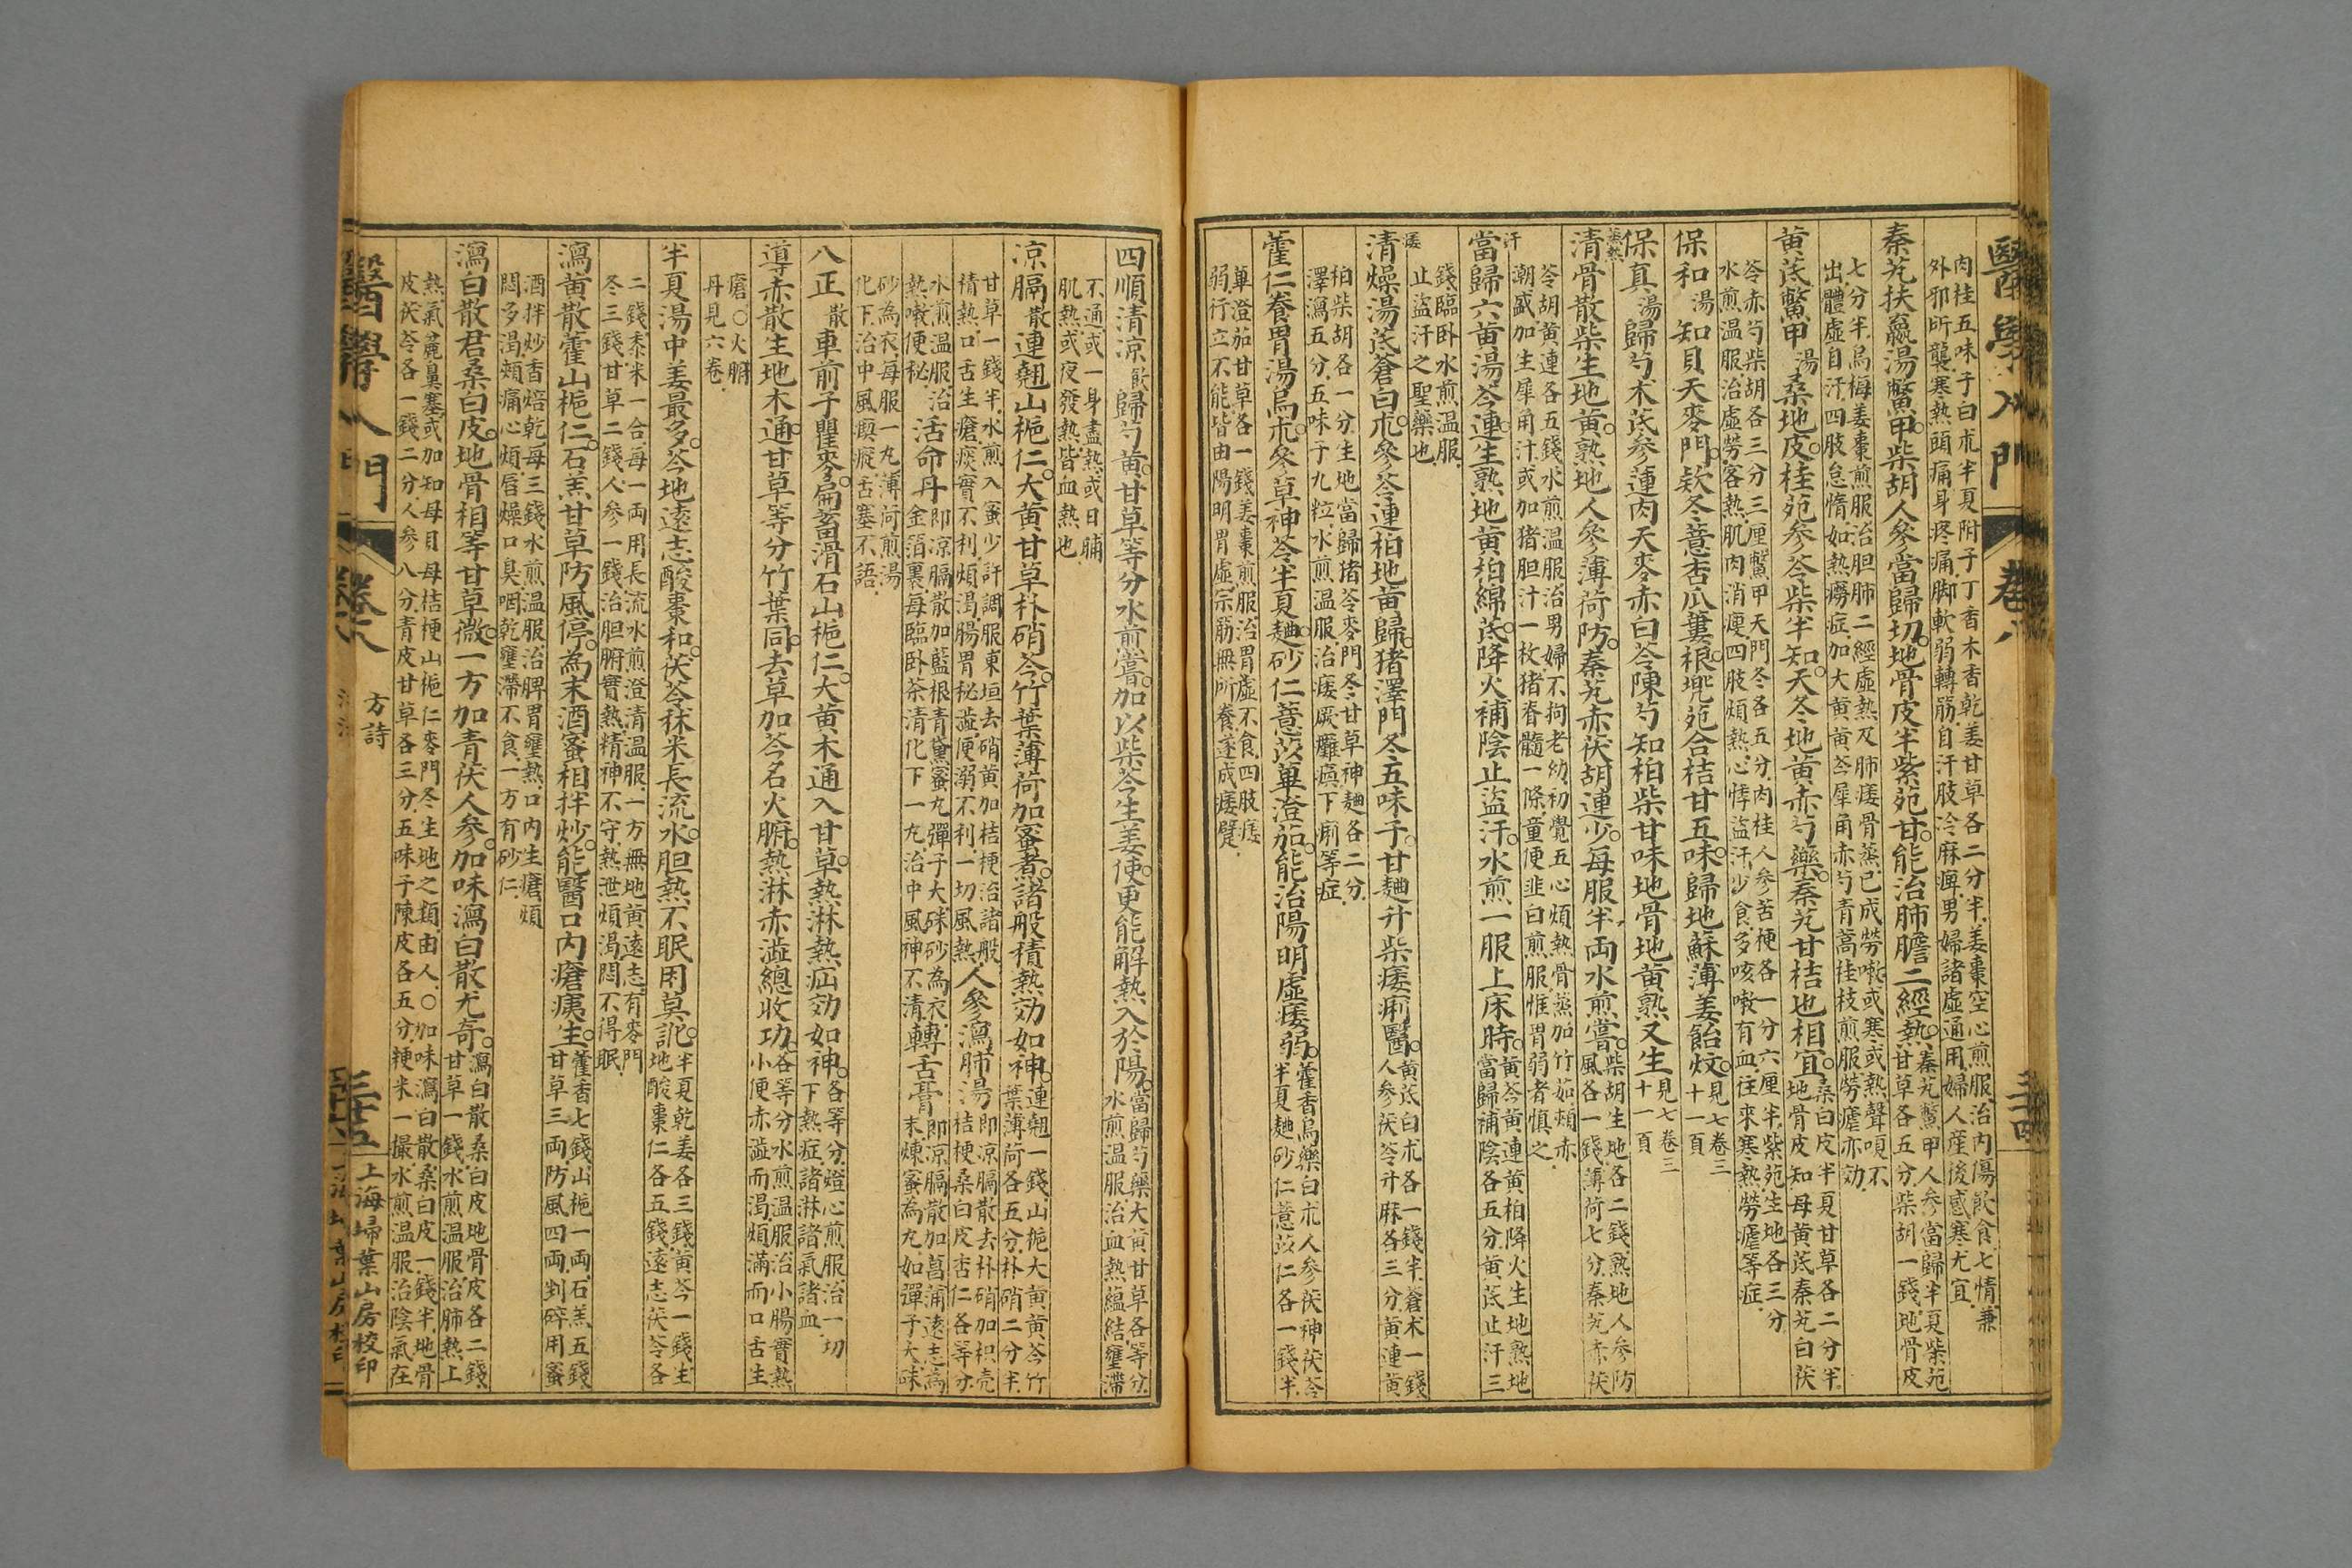 醫學入門 卷八 三十四
肉桂五味子白朮半夏附子丁香木香乾姜甘草各二分半姜棗空心煎服治內傷飲食七情兼
外邪所襲寒熱頭痛身疼痛脚軟弱轉筋自汗肢冷麻痺男婦諸虛通用婦人產後感寒尤宜
秦艽扶羸湯鱉甲柴胡人參當歸切地骨皮半紫苑甘能治肺膽二經熱
秦艽鱉甲人參當歸半夏柴苑
甘草各五分柴胡一錢地骨皮
七分半烏梅姜棗煎服治胆肺二經虛熱及肺痿骨蒸已成勞嗽或寒或熱聲嗄不
出體虛自汗四肢怠惰如熱癆症加大黃黃芩犀角赤芍青蒿桂枝煎服勞瘧亦効
黃芪鱉甲湯桑地皮桂苑參苓柴半知天冬地黃赤芍藥秦艽甘桔也相宜
桑白皮半夏甘草各二分半
地骨皮知母黃芪秦艽白茯
苓赤芍柴胡各三分三厘鱉甲天門冬各五分肉桂人參苦梗各一分六厘半紫苑生地各三分
水煎溫服治虛勞客熱肌肉消瘦四肢煩熱心悸盜汗少食多咳嗽有血往來寒熱勞瘧等症
保和湯知貝天麥門欵冬薏杏瓜蔞根兜苑合桔甘五味歸地蘇薄姜飴炆
見七卷三
十一頁
保真湯歸芍朮芪參蓮肉天麥赤白苓陳芍知柏柴甘味地骨地黃熟又生
見七卷三
十一頁
蒸熱
清骨散柴生地黃熟地人參薄荷防秦艽赤茯胡連少每服半両水煎嘗
柴胡生地各二錢熟地人參防
風各一錢薄荷七分秦艽赤茯
苓胡黃連各五錢水煎溫服治男婦不拘老幼初覺五心煩熱骨蒸加竹茹頰赤
潮盛加生犀角汁或加猪胆汁一枚猪脊髓一條童便韭白煎服惟胃弱者慎之
汗
當歸六黃湯芩連生熟地黃柏綿芪降火補陰止盜汗水煎一服上床時
黃芩黃連黃柏降火生地熟地
當歸補陰各五分黃芪止汗三
錢臨卧水煎溫服
止盜汗之聖藥也
痿
清燥湯芪蒼白朮參苓連柏地黃歸猪澤門冬五味子甘麯升柴痿痢醫
黃芪白朮各一錢半蒼朮一錢
人參茯苓升麻各三分黃連黃
柏柴胡各一分生地當歸猪苓麥門冬甘草神麯各二分
澤瀉五分五味子九粒水煎溫服治痿厥癱瘓下痢等症
藿仁養胃湯烏朮參草神苓半夏麯砂仁薏苡蓽澄茄能治陽明虛痿弱
藿香烏藥白朮人參茯神茯苓
半夏麯砂仁薏苡仁各一錢半
蓽澄茄甘草各一錢姜棗煎服治胃虛不食四肢痿
弱行立不能皆由陽明胃虛宗筋無所養遂成痿躄
四順清凉歌歸芍黃甘草等分水煎嘗加以柴芩生姜便更能解熱入於陽
當歸芍藥大黃甘草各等分
水煎溫服治血熱蘊結壅滯
不通或一身盡熱或日晡
肌熱或夜發熱皆血熱也
凉膈散連翹山梔仁大黃甘草朴硝芩竹葉薄荷加蜜煮諸般積熱効如神
連翹一錢山梔大黃黃芩竹
葉薄荷各五分朴硝二分半
甘草一錢半水煎入蜜少許調服東垣去硝黃加桔梗治諸般
積熱口舌生瘡痰實不利煩渴腸胃秘澁便溺不利一切風熱
人參瀉肺湯
即凉膈散去朴硝加枳壳
桔梗桑白皮杏仁各等分
水煎溫服治
熱嗽便秘
活命丹
即凉膈散加藍根青黛蜜丸彈子大硃砂為衣
金箔裹每臨卧茶清化下一丸治中風神不清
轉舌膏
即凉膈散加菖蒲遠志為
末煉蜜為丸如彈子大硃
砂為衣每服一丸薄荷煎湯
化下治中風瘼瘲舌塞不語
八正散車前子瞿麥扁蓄滑石山梔仁大黃木通入甘草熱淋熱疝効如神
各等分燈心煎服治一切
下熱症諸淋諸氣諸血
導赤散生地木通甘草等分竹葉同去草加芩名火腑熱淋赤澁總收功
各等分水煎溫服治小腸實熱
小便赤澁而渴煩滿而口舌生
瘡○火腑
丹見六卷
半夏湯中姜最多芩地遠志酸棗和茯苓秫米長流水胆熱不眠用莫訛
半夏乾姜各三錢黃芩一錢生
地酸棗仁各五錢遠志茯苓各
二錢黍米一合每一両用長流水煎澄清溫服一方無地黃遠志有麥門
冬三錢甘草二錢人參一錢治胆腑實熱精神不守熱泄煩渴悶不得眠
瀉黃散藿山梔仁石羔甘草防風停為末酒蜜相拌炒能醫口內瘡痍生
藿香七錢山梔一両石羔五錢
甘草三両防風四両剉碎用蜜
酒拌炒香焙乾每三錢水煎溫服治脾胃壅熱口內生瘡煩
悶多渴頰痛心煩唇燥口臭咽乾壅滯不食一方有砂仁
瀉白散君桑白皮地骨相等甘草微一方加青茯人參加味瀉白散尤奇
瀉白散桑白皮地骨皮各二錢
甘草一錢水煎溫服治肺熱上
熱氣麄鼻塞或加知母貝母桔梗山梔仁麥門冬生地之類由人○加味瀉白散桑白皮一錢半地骨
皮茯苓各一錢二分人參八分青皮甘草各三分五味子陳皮各五分粳米一撮水煎溫服治陰氣在
醫學入門 卷八 方詩 三十五 上海埽葉山房校印